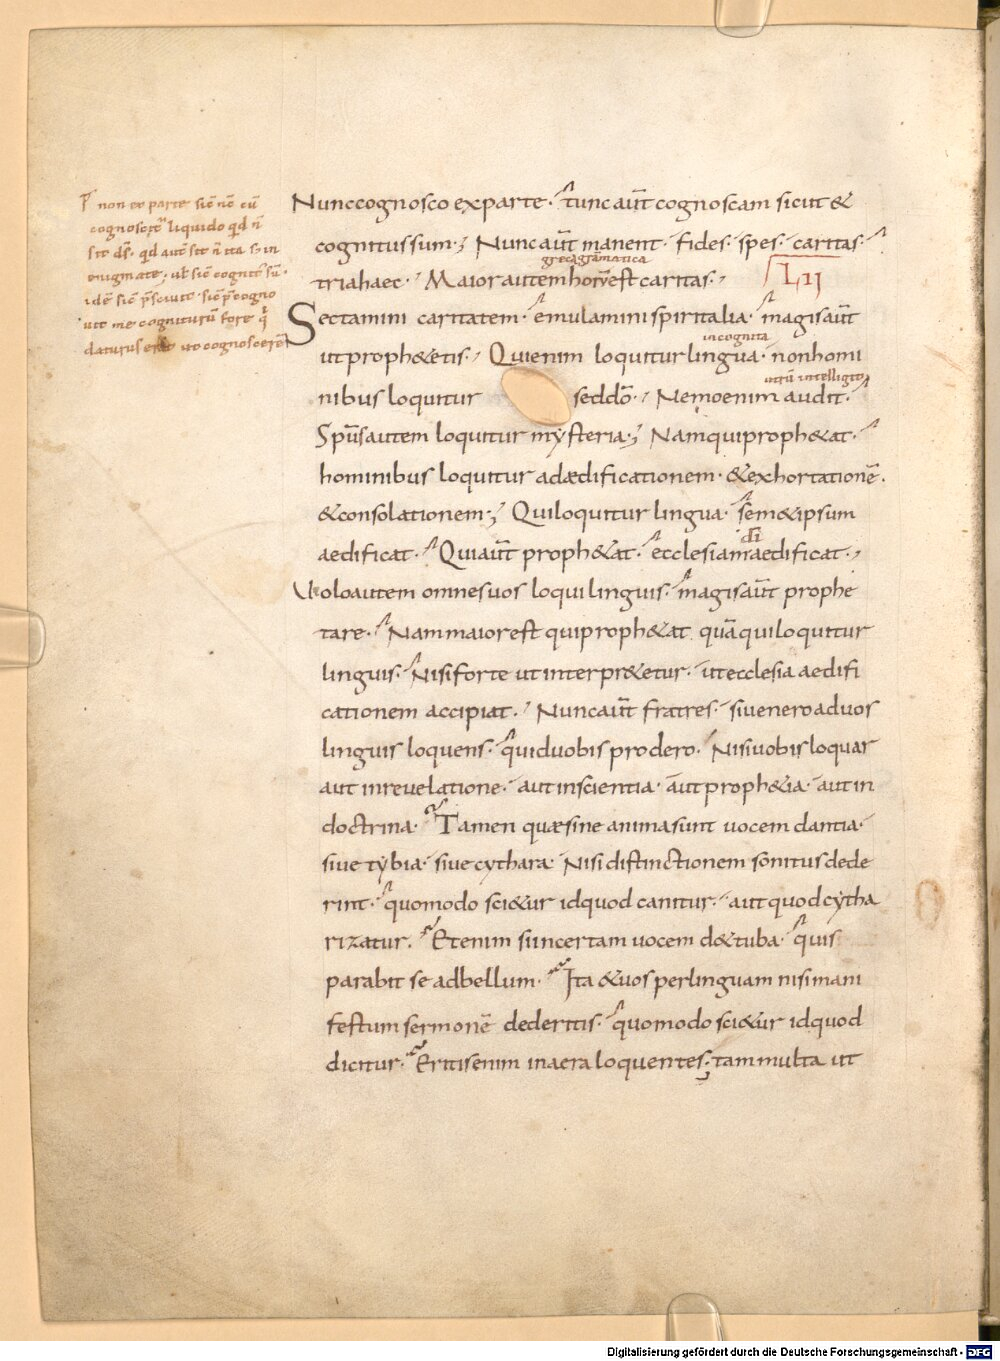 Nunc cognosco ex parte. tunc aut̄ cognoscam sicut &
cognitus sum; Nunc aut̄ manent. fides. spes. caritas.
greca gramatica
tria haec. Maior autem horū est caritas.
LII
Sectamini caritatem. emulamini spiritalia. magis aut̄
incognita
ut proph&etis. Qui enim loquitur lingua. non homi
nibus loquitur sed dō. Nemo enim audit.
Sp̄s autem loquitur mysteria; Nam qui proph&at.
hominibus loquitur ad aedificationem. & exhortationē.
& consolationem; Qui loquitur lingua. sem&ipsum
aedificat. Qui aut̄ proph&at. ecclesiam dī aedificat.
Volo autem omnes uos loqui linguis. magis aut̄ prophe
tare. Nam maior est qui proph&at quā qui loquitur
linguis. Nisi forte ut interpr&etur. ut ecclesia aedifi
cationem accipiat. Nunc aut̄ fratres. si uenero ad uos
linguis loquens. quid uobis prodero. Nisi uobis loquar
aut in reuelatione. aut in scientia. aut proph&ia. aut in
doctrina. Tamen quae sine anima sunt uocem dantia.
siue tybia. siue cythara. Nisi distinctionem sonitus dede
rint. quomodo sci&ur id quod canitur. aut quod cytha
rizatur. Etenim si incertam uocem d& tuba. quis
parabit se ad bellum. Ita & uos per linguam nisi mani
festum sermonē dederitis. quomodo sci&ur id quod
dicitur. Eritis enim in aera loquentes; tam multa ut
non ex parte sic̄ nc̄ cū
liquido qd n̄
Digitalisierung gefördert durch die Deutsche Forschungsgemeinschaft - DFG